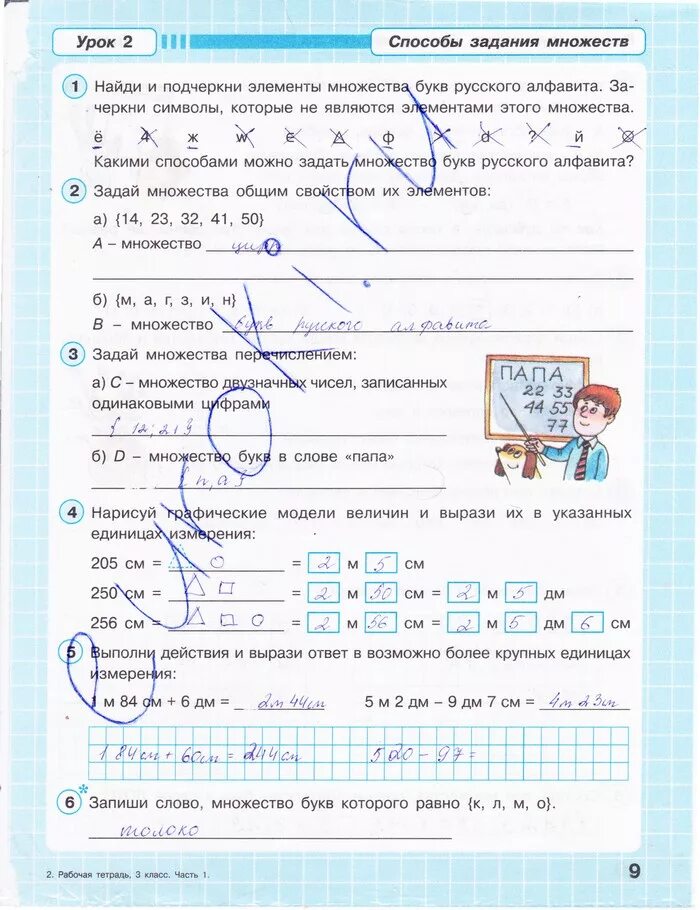 Урок 2
Способы задания множеств
1 Найди и подчеркни элементы множества букв русского алфавита. За-
черкни символы, которые не являются элементами этого множества.
ё 4 ж w ё Δ ф > d ? й
Какими способами можно задать множество букв русского алфавита?
2 Задай множества общим свойством их элементов:
а) {14, 23, 32, 41, 50}
A – множество цифр
б) {м, а, г, з, и, н}
B – множество букв русского алфавита
3 Задай множества перечислением:
а) C – множество двузначных чисел, записанных
одинаковыми цифрами
{ 12; 21}
б) D – множество букв в слове «папа»
{п, а}
ПАПА
22 33
44 55
77
4 Нарисуй графические модели величин и вырази их в указанных
единицах измерения:
205 см = = 2 м 5 см
250 см = = 2 м 50 см = 2 м 5 дм
256 см = = 2 м 56 см = 2 м 5 дм 6 см
5 Выполни действия и вырази ответ в возможно более крупных единицах
измерения:
1 м 84 см + 6 дм = 2м 44см 5 м 2 дм – 9 дм 7 см = 4м 23см
184см + 60см = 244см 520 – 97 =
6* Запиши слово, множество букв которого равно {к, л, м, о}.
молоко
2. Рабочая тетрадь, 3 класс. Часть 1.
9